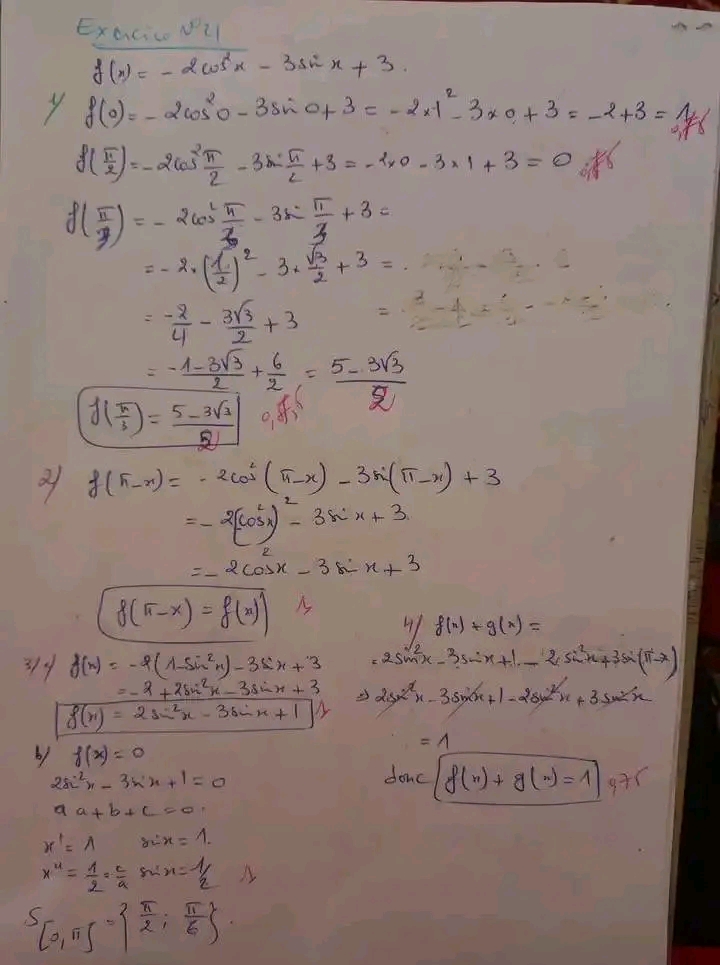 Exercice N°21
f(x) = - 2cos²x - 3sin x + 3.
1/ f(0) = - 2cos²0 - 3sin 0 + 3 = - 2×1² - 3×0 + 3 = -2+3 = 1 0,75
f(π/2) = - 2cos² π/2 - 3sin π/2 + 3 = - 2×0 - 3×1 + 3 = 0 0,75
f(π/3) = - 2cos² π/3 - 3sin π/3 + 3 =
= - 2×(1/2)² - 3×√3/2 + 3 =
= -2/4 - 3√3/2 + 3
= -1-3√3/2 + 6/2 = 5-3√3/2
f(π/3) = 5-3√3/2 0,75
2/ f(π-x) = - 2cos²(π-x) - 3sin(π-x) + 3
= - 2(cos x)² - 3sin x + 3
= - 2cos²x - 3sin x + 3
f(π-x) = f(x) 1
3/a/ f(x) = -2(1-sin²x) - 3sin x + 3
= -2 + 2sin²x - 3sin x + 3
f(x) = 2sin²x - 3sin x + 1 1
b/ f(x) = 0
2sin²x - 3sin x + 1 = 0
a + b + c = 0.
x' = 1 sin x = 1.
x" = 1/2 = c/a sin x = 1/2 1
S[0,π] = { π/2 ; π/6 }.
4/ f(x) + g(x) =
= 2sin²x - 3sin x + 1 - 2sin²x + 3sin(π-x)
⇒ 2sin²x - 3sin x + 1 - 2sin²x + 3sin x
= 1
donc f(x) + g(x) = 1 0,75